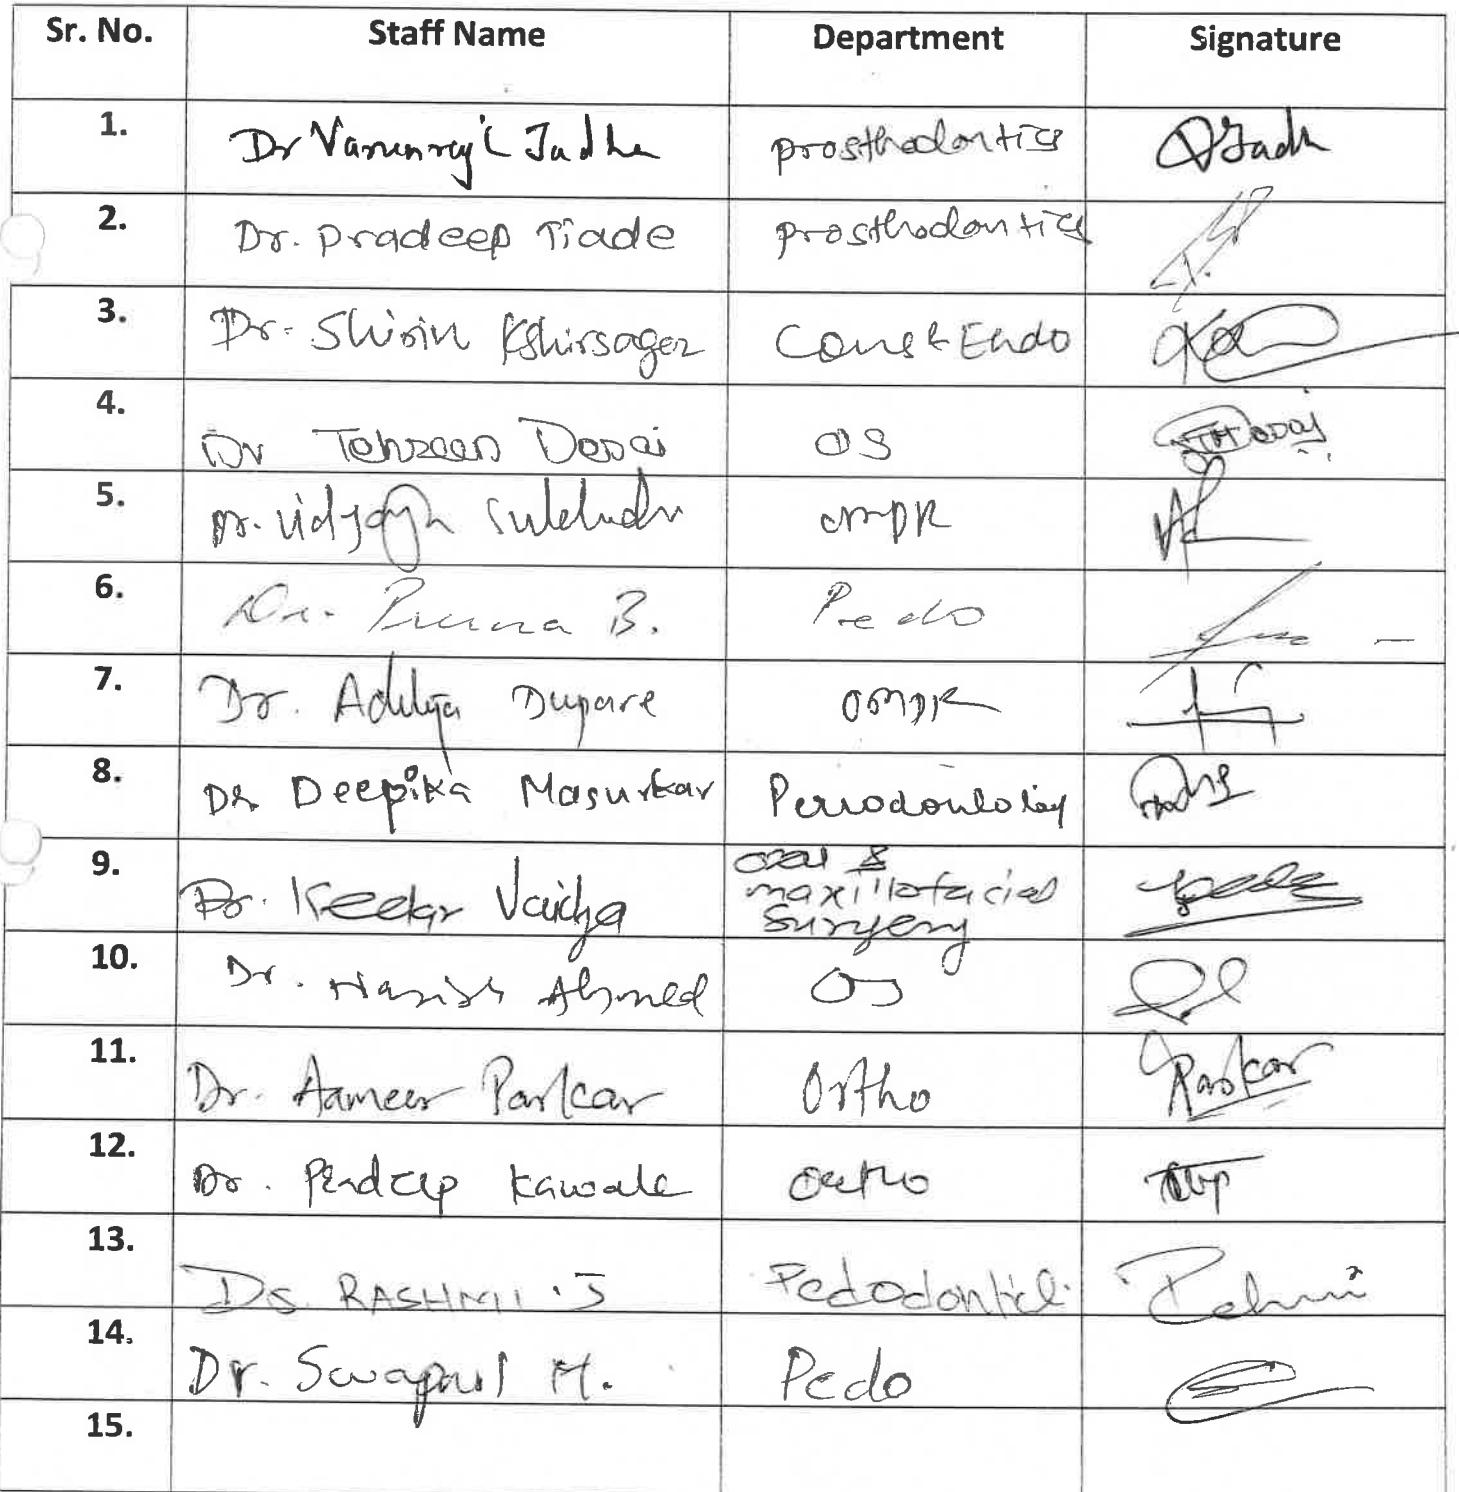 Sr. No. Staff Name Department Signature
1. Dr prosthodontics
2. Dr. pradeep Tiade prosthodontics
3. Dr. Shirin Kshirsagar Cons & Endo
4. Dr Tehzeen Desai OS Desai
5. Dr. OMDR
6. Dr. B. Pedo
7. Dr. Aditya Dupare OMDR
8. Dr Deepika Masurkar Periodontology
9. Dr. Kedar Vaidya oral &
maxillofacial
surgery
10. Dr. Ahmed OS
11. Dr. Aameer Parkar Ortho Parkar
12. Dr. Pradeep Kawale Ortho
13. Dr. RASHMI .J Pedodontics.
14. Dr. Swapnil M. Pedo
15.